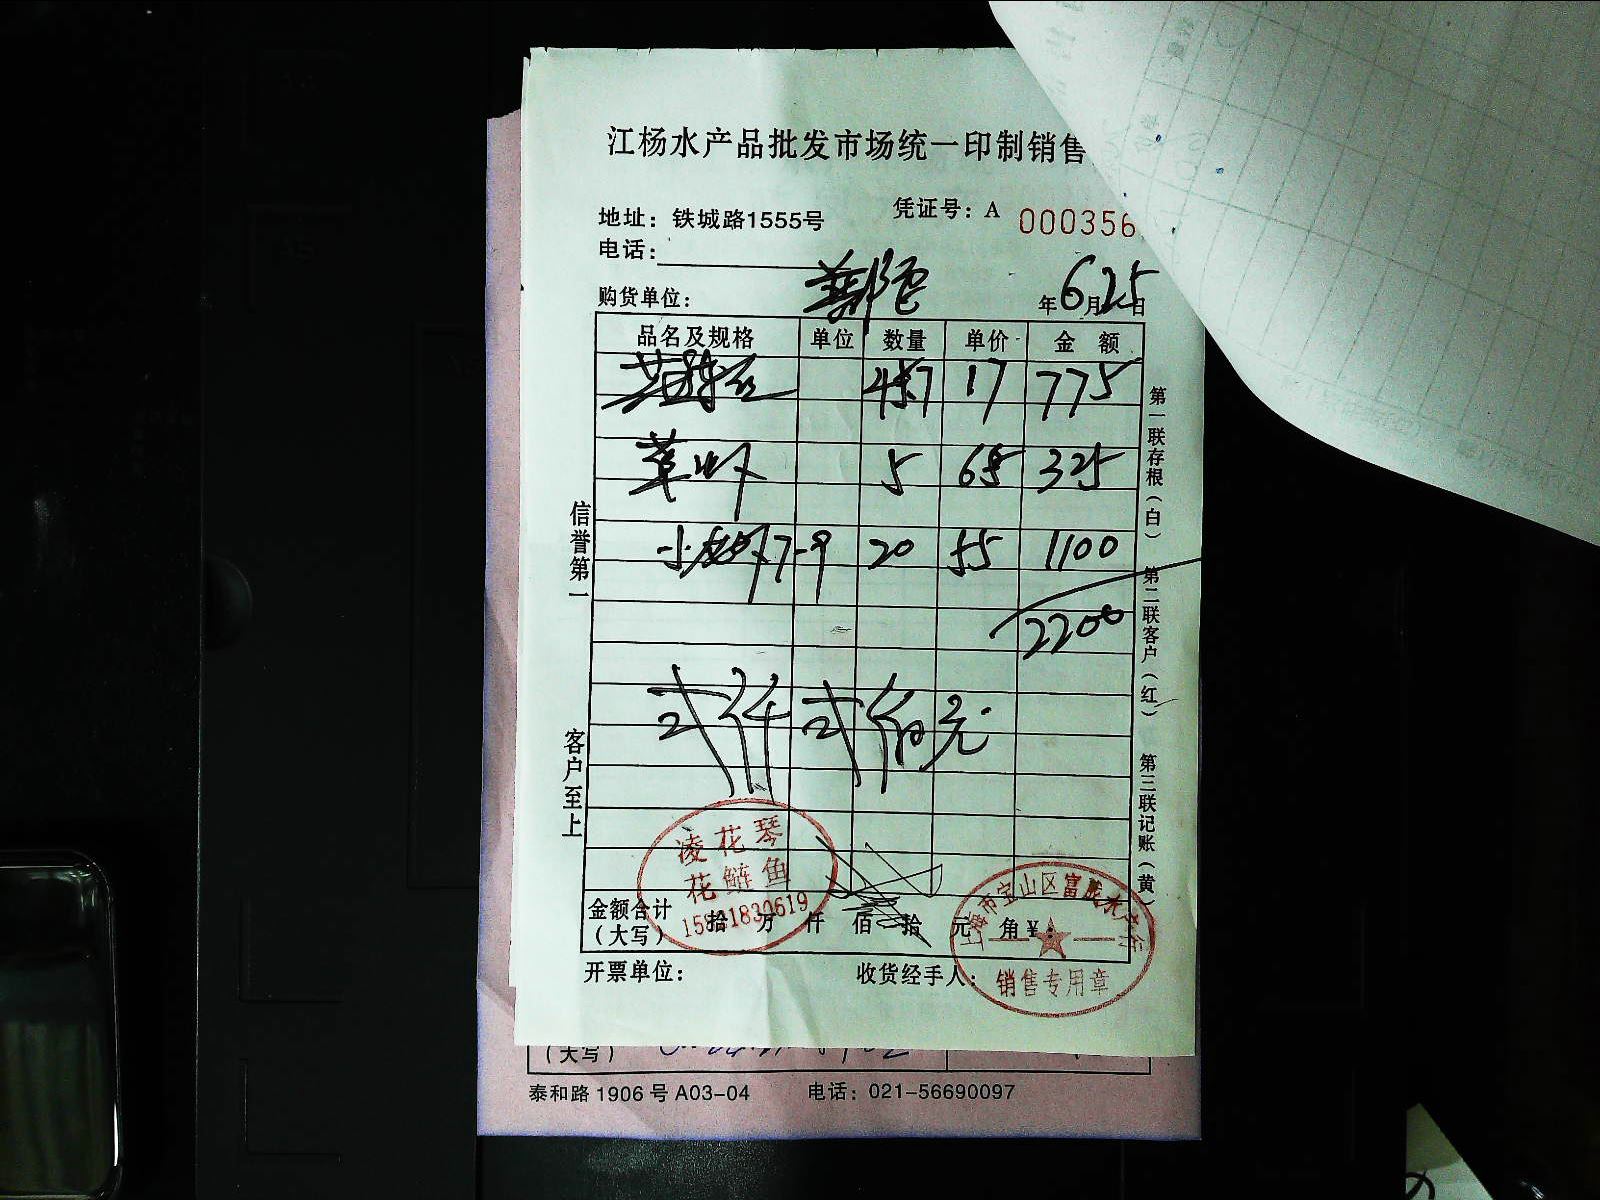 江杨水产品批发市场统一印制销售
地址：铁城路1555号
凭证号：A 000356
电话：
购货单位：
年6月25日
品名及规格 单位 数量 单价 金额
457 17 775
草虾 5 65 325
小龙虾7-9 20 55 1100
2200
贰仟贰佰元
信誉第一
客户至上
第一联存根（白） 第二联客户（红） 第三联记账（黄）
凌花琴
花鲢鱼
金额合计（大写） 拾 万 仟 佰 拾 元 角 ¥：
上海市宝山区富胜水产行
销售专用章
开票单位： 收货经手人：
（大写）
泰和路1906号A03-04 电话：021-56690097